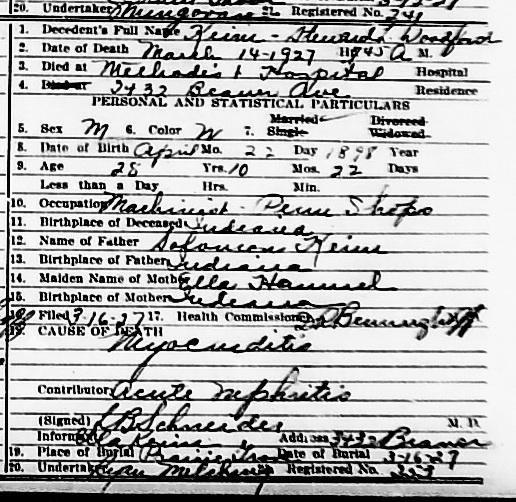 20. Undertaker Mungovan Registered No. 241
1. Decedent's Full Name Keim - Stewards Woodford
2. Date of Death March 14-1927 H 845 A M.
3. Died at Methodist Hospital Hospital
4. Died at 3432 Beaver Ave. Residence
PERSONAL AND STATISTICAL PARTICULARS
Married Divorced
5. Sex M 6. Color W 7. Single Widowed
8. Date of Birth April Mo. 22 Day 1898 Year
9. Age 28 Yrs. 10 Mos. 22 Days
Less than a Day Hrs. Min.
10. Occupation Machinist - Penn Shops
11. Birthplace of Deceased Indiana
12. Name of Father Solomon Keim
13. Birthplace of Father Indiana
14. Maiden Name of Mother Ella Hammel
15. Birthplace of Mother Indiana
Filed 3-16-27 17. Health Commissioner
CAUSE OF DEATH
Myocarditis
Contributory Acute Nephritis
(Signed) Schneider M. D.
Informant Ella Keim Address 3432 Beaver
19. Place of Burial Prairie Grove Date of Burial 3-16-27
20. Undertaker Registered No. 223